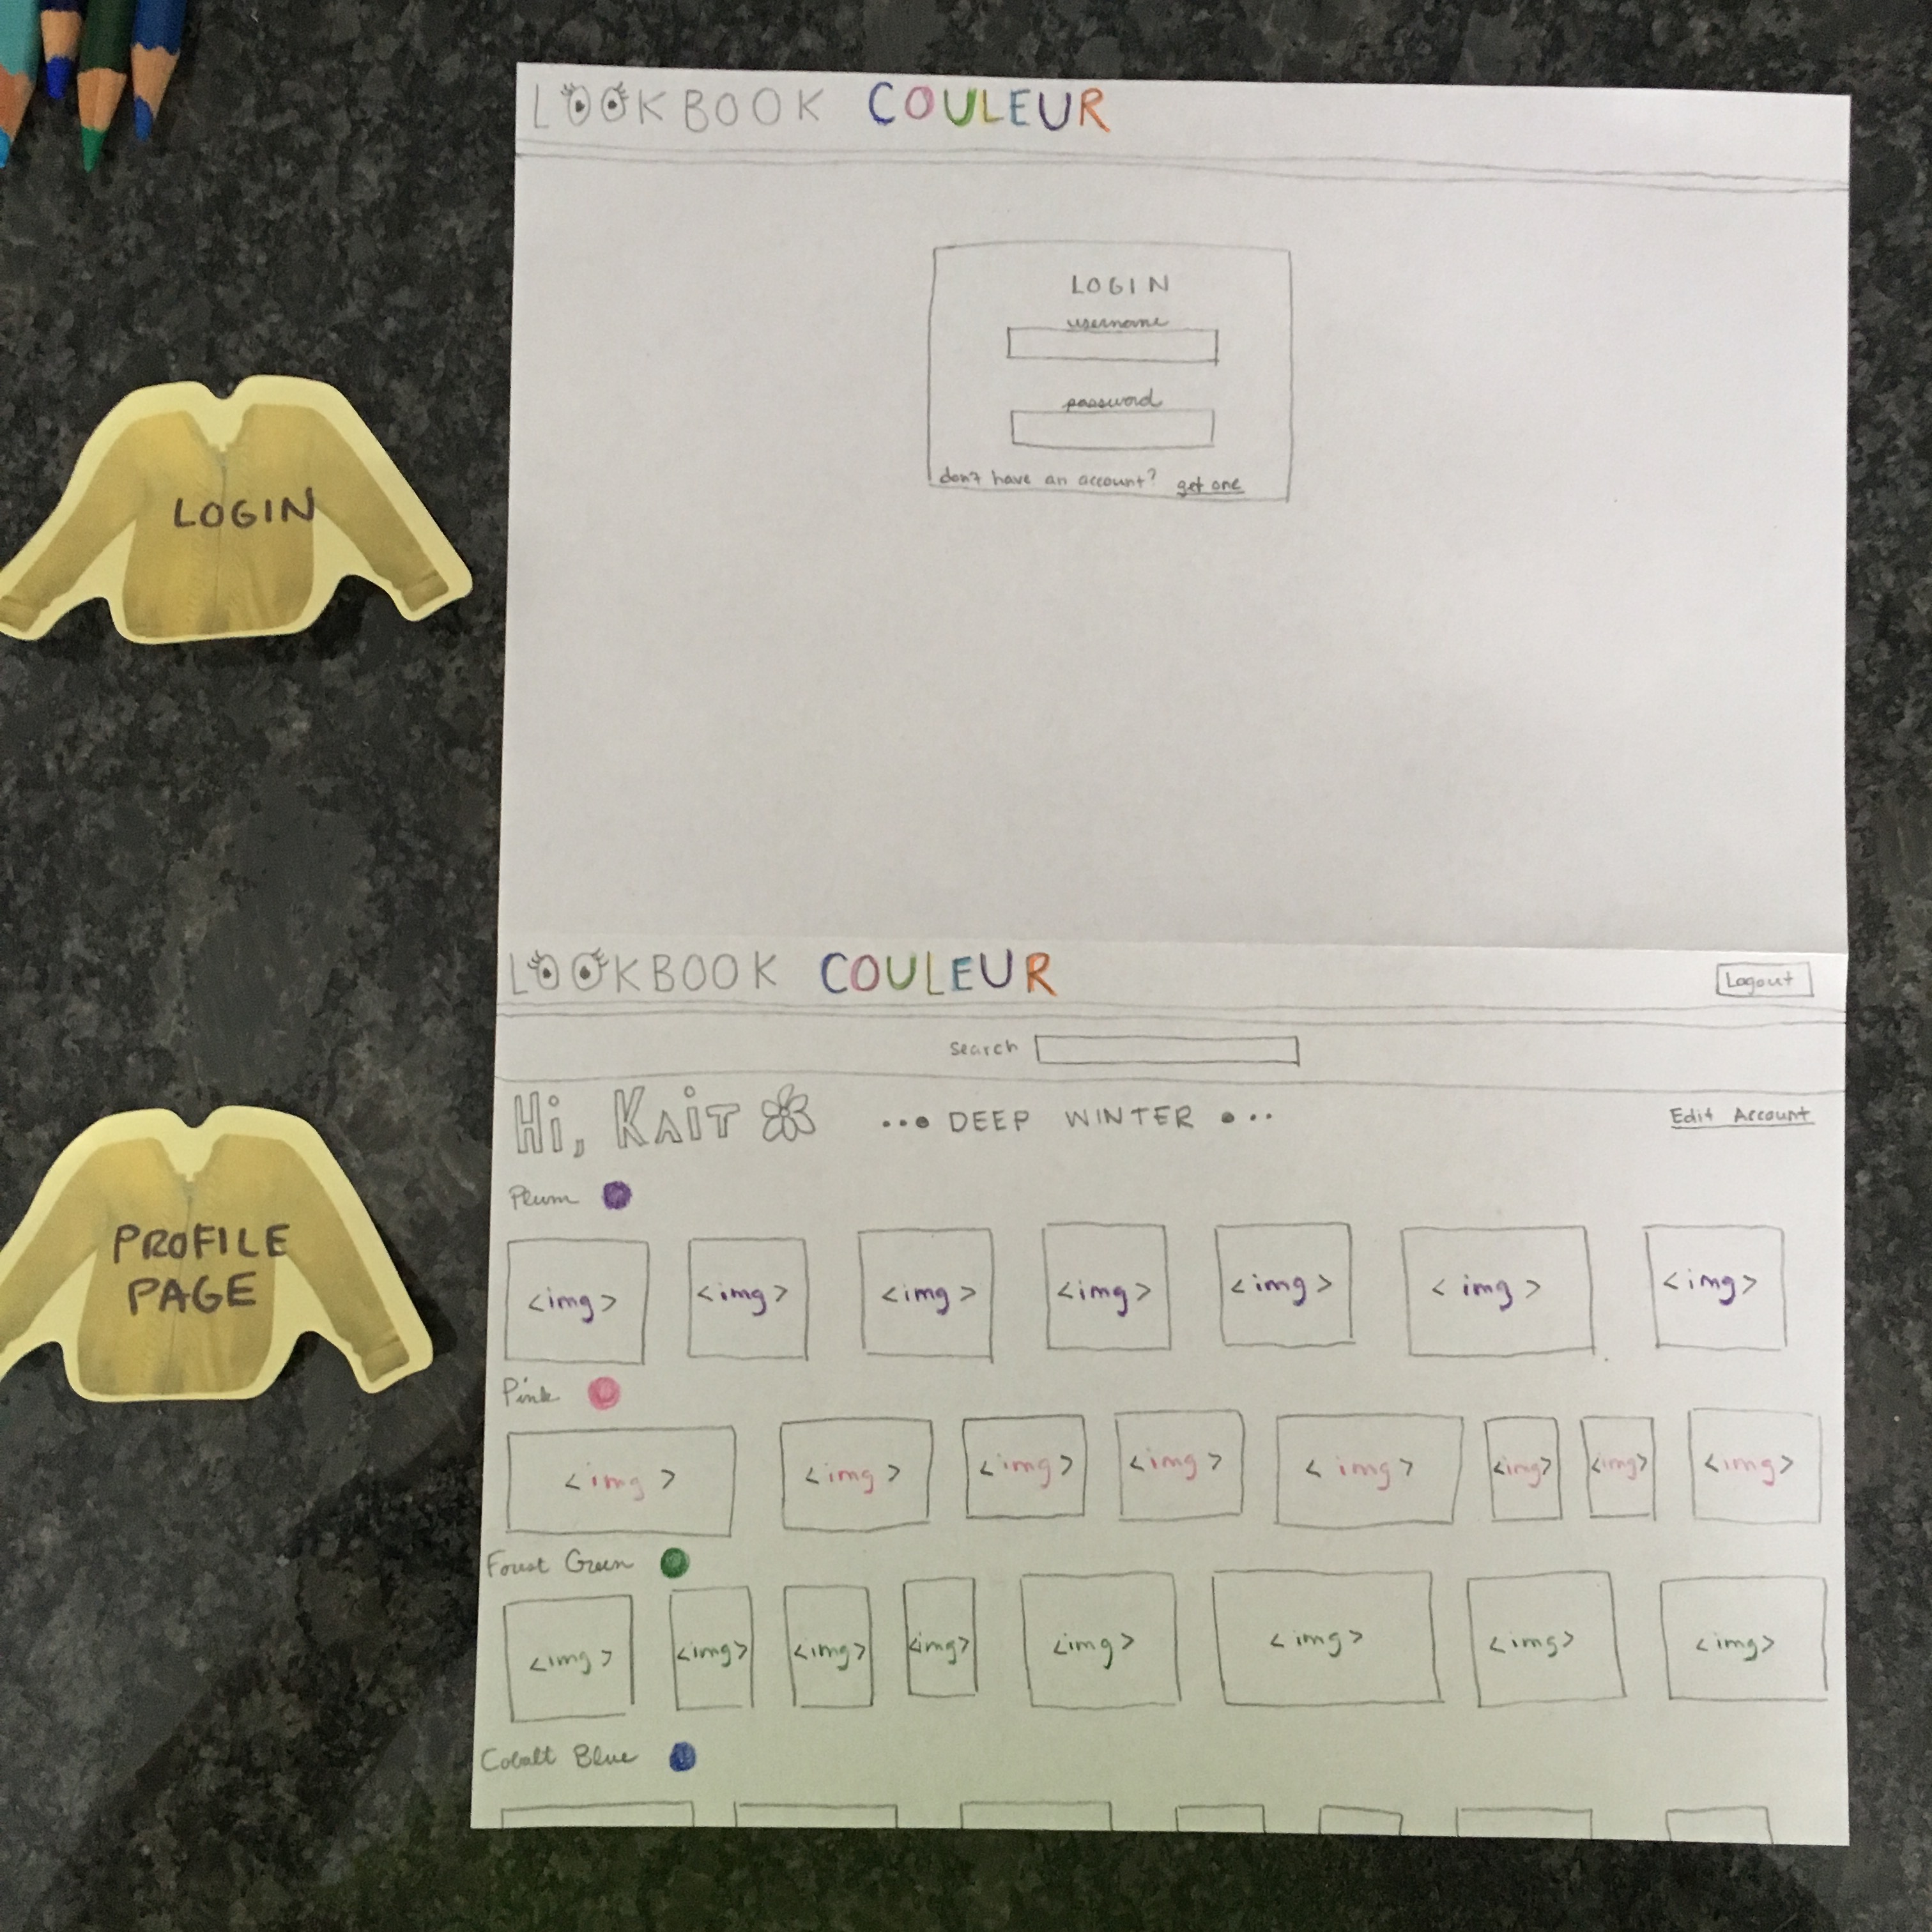 LOOKBOOK COULEUR
LOGIN
username
password
don't have an account? get one
LOGIN
LOOKBOOK COULEUR
Logout
Search
Hi, KAiT
DEEP WINTER
Edit Account
Plum
<img> <img> <img> <img> <img> <img> <img>
Pink
<img> <img> <img> <img> <img> <img> <img> <img>
Forest Green
<img> <img> <img> <img> <img> <img> <img> <img>
Cobalt Blue
PROFILE
PAGE